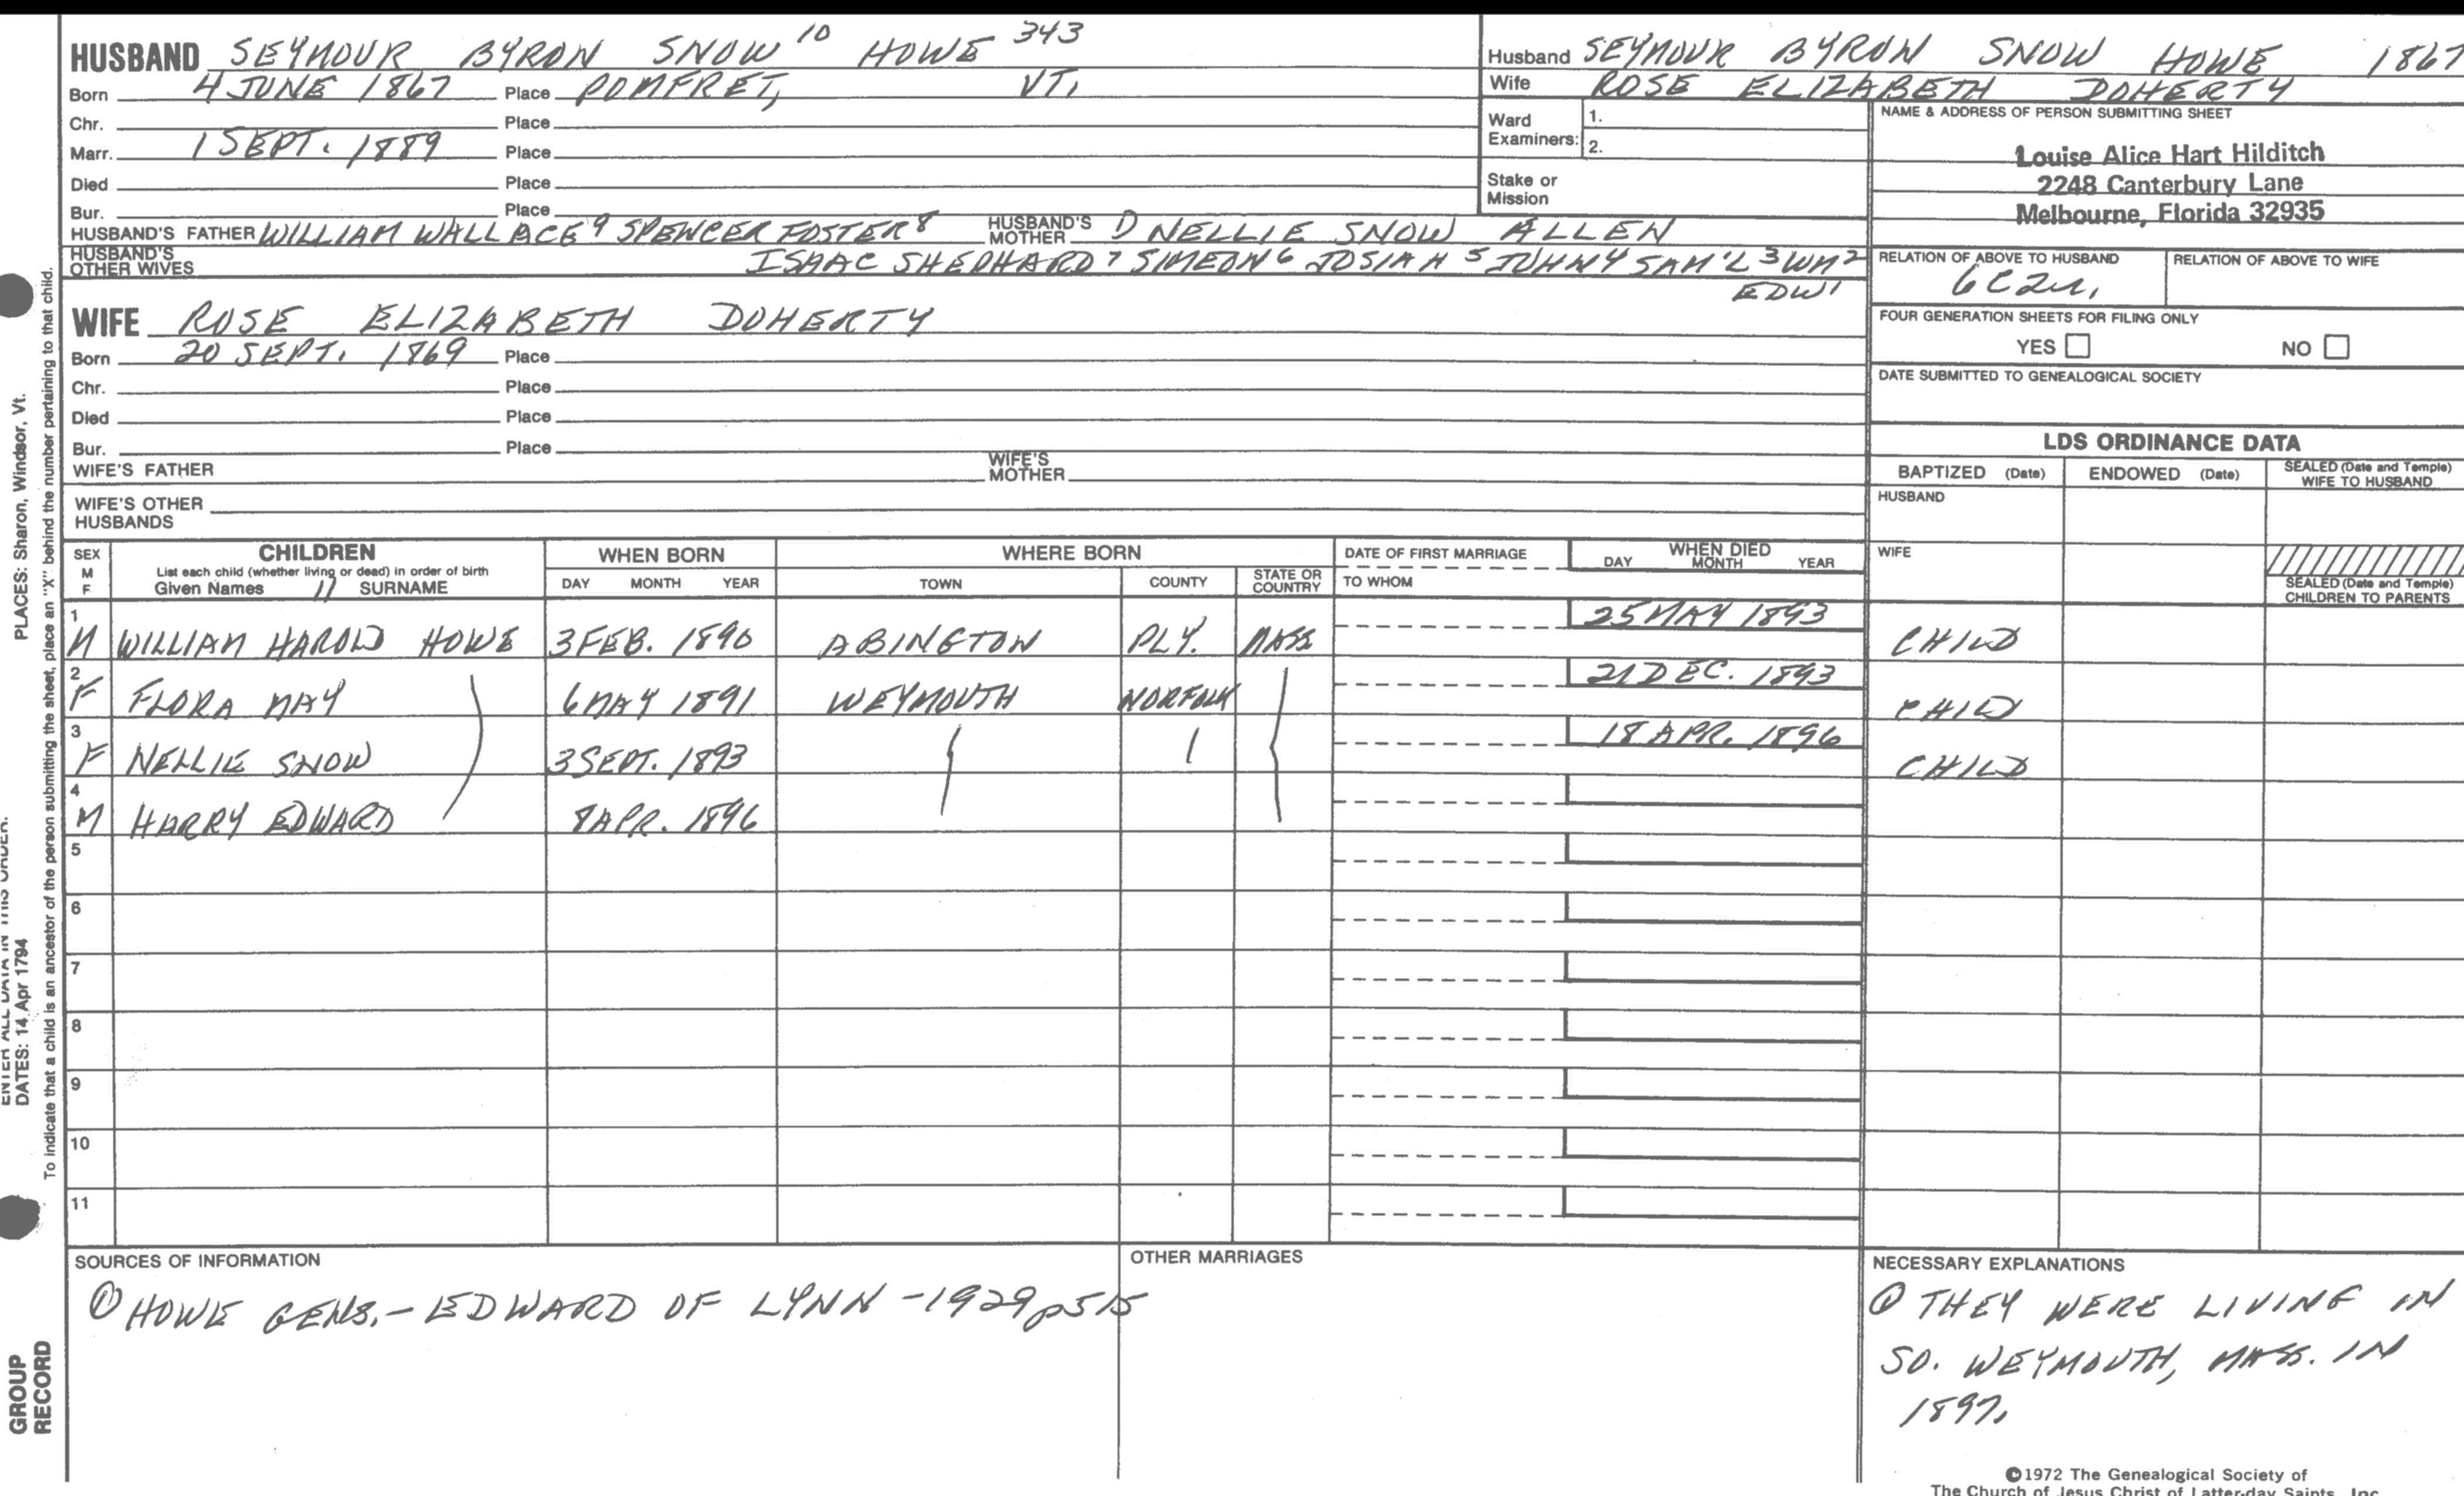 HUSBAND SEYMOUR BYRON SNOW 10 HOWE 343
Born 4 JUNE 1867 Place POMFRET, VT.
Chr. Place
Marr. 1 SEPT. 1889 Place
Died Place
Bur. Place
HUSBAND'S FATHER WILLIAM WALLACE 9 SPENCER FOSTER 8 HUSBAND'S MOTHER D NELLIE SNOW ALLEN
HUSBAND'S OTHER WIVES ISAAC SHEPHARD 7 SIMEON 6 JOSIAH 5 JOHN 4 SAM'L 3 WM 2
EDW 1
WIFE ROSE ELIZABETH DOHERTY
Born 20 SEPT. 1869 Place
Chr. Place
Died Place
Bur. Place
WIFE'S FATHER WIFE'S MOTHER
WIFE'S OTHER HUSBANDS
Husband SEYMOUR BYRON SNOW HOWE 1867
Wife ROSE ELIZABETH DOHERTY
Ward Examiners: 1.
2.
Stake or Mission
NAME & ADDRESS OF PERSON SUBMITTING SHEET
Louise Alice Hart Hilditch
2248 Canterbury Lane
Melbourne, Florida 32935
RELATION OF ABOVE TO HUSBAND RELATION OF ABOVE TO WIFE
FOUR GENERATION SHEETS FOR FILING ONLY
YES NO
DATE SUBMITTED TO GENEALOGICAL SOCIETY
LDS ORDINANCE DATA
BAPTIZED (Date) ENDOWED (Date) SEALED (Date and Temple) WIFE TO HUSBAND
HUSBAND
WIFE
SEALED (Date and Temple) CHILDREN TO PARENTS
SEX M F CHILDREN List each child (whether living or dead) in order of birth Given Names // SURNAME WHEN BORN DAY MONTH YEAR WHERE BORN TOWN COUNTY STATE OR COUNTRY DATE OF FIRST MARRIAGE TO WHOM WHEN DIED DAY MONTH YEAR
1 M WILLIAM HAROLD HOWE 3 FEB. 1890 ABINGTON PLY. MASS 25 MAY 1893 CHILD
2 F FLORA MAY 6 MAY 1891 WEYMOUTH NORFOLK 21 DEC. 1893 CHILD
3 F NELLIE SNOW 3 SEPT. 1893 18 APR. 1896 CHILD
4 M HARRY EDWARD 8 APR. 1896
5
6
7
8
9
10
11
SOURCES OF INFORMATION
① HOWE GENS. - EDWARD OF LYNN - 1929 p515
OTHER MARRIAGES
NECESSARY EXPLANATIONS
① THEY WERE LIVING IN
SO. WEYMOUTH, MASS. IN
1897.
©1972 The Genealogical Society of
The Church of Jesus Christ of Latter-day Saints, Inc.
PLACES: Sharon, Windsor, Vt.
ENTER ALL DATA IN THIS ORDER:
DATES: 14 Apr 1794
To indicate that a child is an ancestor of the person submitting the sheet, place an "X" behind the number pertaining to that child.
GROUP
RECORD